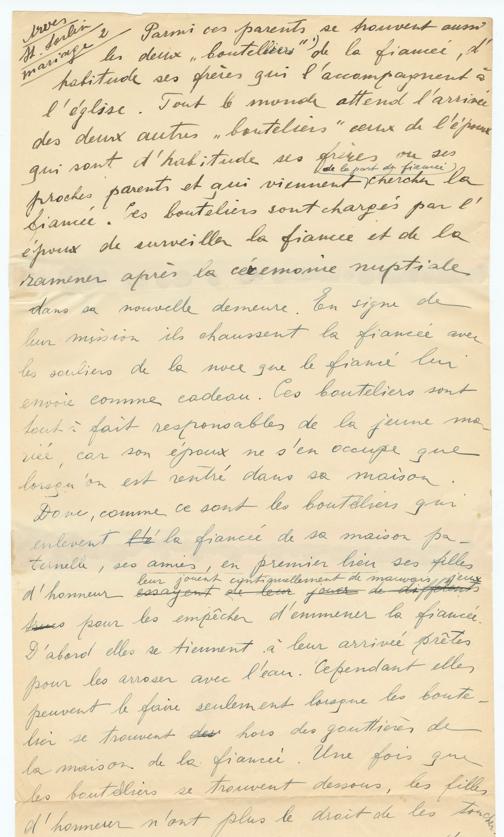 Arves
St. Sorlin
mariage 2
Parmi ces parents se trouvent aussi
les deux „bouteliers"¹) de la fiancée, d'
habitude ses frères qui l'accompagnent à
l'église. Tout le monde attend l'arrivée
des deux autres „bouteliers" ceux de l'époux
qui sont d'habitude ses frères ou ses
(de la part du fiancé)
proches parents et qui viennent chercher la
fiancée. Ces bouteliers sont chargés par l'
époux de surveiller la fiancée et de la
ramener après la cérémonie nuptiale
dans sa nouvelle demeure. En signe de
leur mission ils chaussent la fiancée avec
les souliers de la noce que le fiancé lui
envoie comme cadeau. Ces bouteliers sont
tout à fait responsables de la jeune ma-
riée, car son époux ne s'en occupe que
lorsqu'on est rentré dans sa maison.
Donc, comme ce sont les bouteliers qui
enlevent la fiancée de sa maison pa-
ternelle, ses amies, en premier lieu ses filles
leur jouent continuellement de mauvais jeux
d'honneur essayent de leur jouer de différents
pour les empêcher d'emmener la fiancée.
D'abord elles se tiennent à leur arrivée prêtes
pour les arroser avec l'eau. Cependant elles
peuvent le faire seulement lorsque les boute-
lier se trouvent des hors des gouttières de
la maison de la fiancée. Une fois que
les bouteliers se trouvent dessous, les filles
d'honneur n'ont plus le droit de les toucher